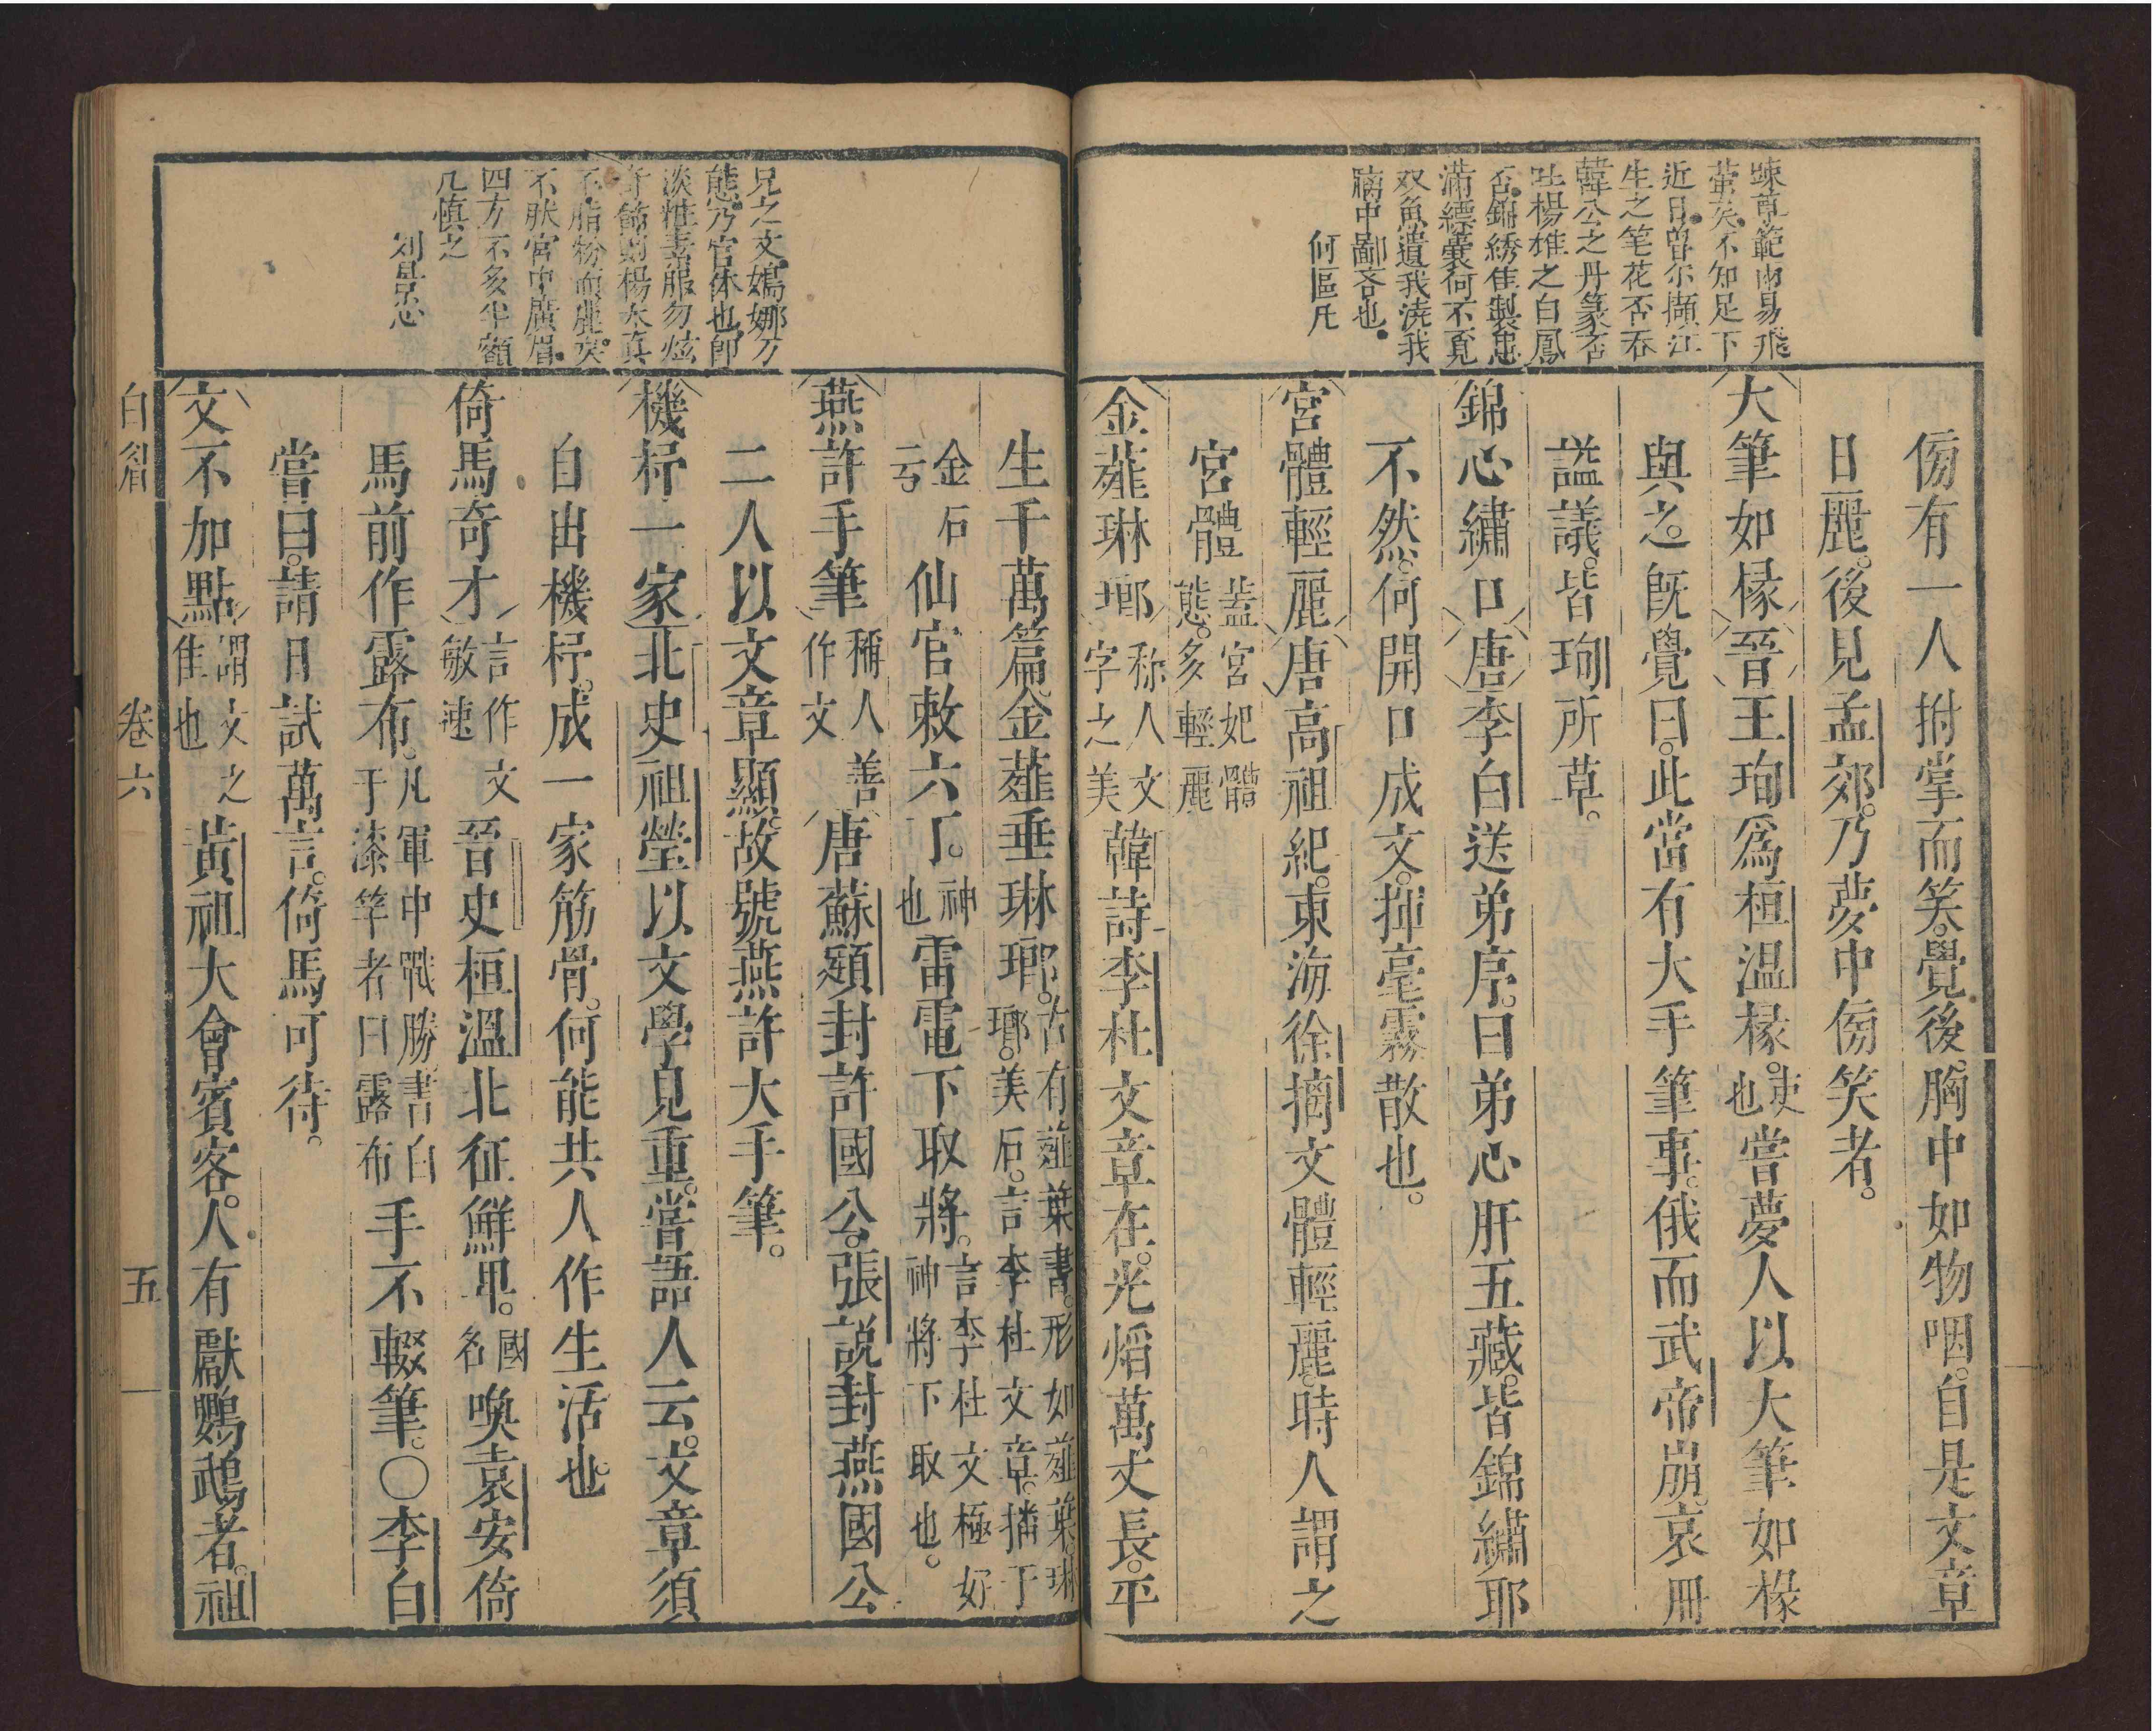 疎竟範曲易飛
葷矣不知足下
近日曽尔擷江
生之笔花否吞
韓公之丹篆否
吐楊雄之白鳳
否錦綉佳製想
滿縹囊何不覔
双魚遺我澆我
牖中鄙吝也
何區凡
傍有一人拊掌而笑覺後胸中如物咽自是文章
日麗後見孟郊乃夢中傍笑者
大筆如椽晉王珣爲桓温椽吏也嘗夢人以大筆如椽
與之旣覺曰此當有大手筆事俄而武帝崩哀冊
謚議皆珣所草
錦心繡口唐李白送弟序曰弟心肝五藏皆錦繡耶
不然何開口成文揮毫霧散也
宮體輕麗唐高祖紀東海徐摛文體輕麗時人謂之
宮體蓋宮妃體態多輕麗
金薤琳瑯称人文字之美韓詩李杜文章在光熖萬丈長平
生千萬篇金薤垂琳瑯古有薤葉書形如薤葉琳瑯美石言李杜文章播于
金石云仙官敕六丁神也雷電下取將言李杜文極好神將下取也
燕許手筆稱人善作文唐蘇頲封許國公張説封燕國公
二人以文章顯故號燕許大手筆
機杼一家北史祖瑩以文學見重嘗語人云文章須
自出機杼成一家筋骨何能共人作生活也
倚馬奇才言作文敏速晉史桓溫北征鮮卑國名喚袁安倚
馬前作露布凡軍中戰勝書白于漆竿者曰露布手不輟筆〇李白
嘗曰請日試萬言倚馬可待
文不加點謂文之佳也黃祖大會賓客人有獻鸚鵡者祖
兄之文嫣娜万
態乃宮体也卽
淡粧素服勿炫
奇飾則楊太真
不脂粉而麗矣
不肰宮中廣眉
四方不多半額
凢慎之
刘景忠
白眉 卷六 五